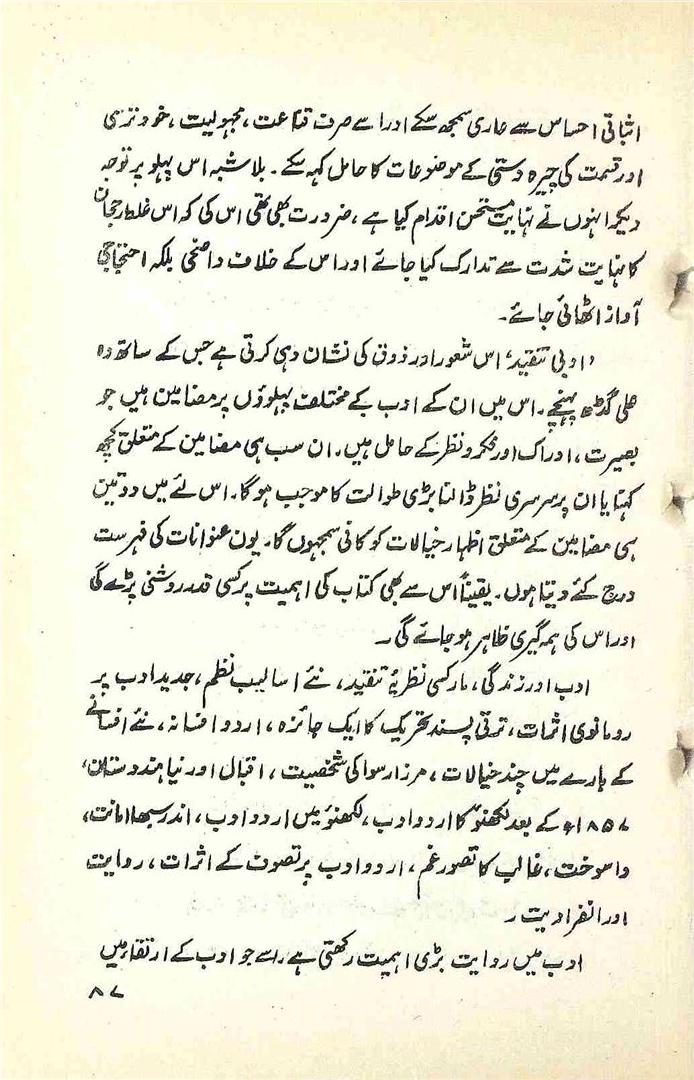 اثباتی احساس سے عاری سمجھ سکے اور اسے صرف قناعت، مجہولیت، خود ترسی
اور قسمت کی چیرہ دستی کے موضوعات کا حامل کہہ سکے۔ بلاشبہ اس پہلو پر توجہ
دیکر انہوں نے نہایت مستحسن اقدام کیا ہے، ضرورت بھی تھی اس کی کہ اس غلط رجحان
کا نہایت شدت سے تدارک کیا جائے اور اس کے خلاف واضحی بلکہ احتجاجی
آواز اٹھائی جائے۔
'ادبی تنقید' اس شعور اور ذوق کی نشان دہی کرتی ہے جس کے ساتھ وہ
علی گڈھ پہنچے۔ اس میں ان کے ادب کے مختلف پہلوؤں پر مضامین ہیں جو
بصیرت، ادراک اور فکر و نظر کے حامل ہیں۔ ان سب ہی مضامین کے متعلق کچھ
کہنا یا ان پر سرسری نظر ڈالنا بڑی طوالت کا موجب ہوگا۔ اس لئے میں دو تین
ہی مضامین کے متعلق اظہار خیالات کو کافی سمجھوں گا۔ یوں عنوانات کی فہرست
درج کئے دیتا ہوں۔ یقیناً اس سے بھی کتاب کی اہمیت پر کسی قدر روشنی پڑے گی
اور اس کی ہمہ گیری ظاہر ہو جائے گی۔
ادب اور زندگی، مارکسی نظریۂ تنقید، نئے اسالیب نظم، جدید ادب پر
رومانوی اثرات، ترقی پسند تحریک کا ایک جائزہ، اردو افسانہ، نئے افسانے
کے بارے میں چند خیالات، مرزا رسوا کی شخصیت، اقبال اور نیا ہندوستان،
۱۸۵۷ء کے بعد لکھنؤ کا اردو ادب، لکھنؤ میں اردو ادب، اندر سبھا امانت،
واسوخت، غالب کا تصور غم، اردو ادب پر تصوف کے اثرات، روایت
اور انفرادیت۔
ادب میں روایت بڑی اہمیت رکھتی ہے۔ اسے جو ادب کے ارتقاء میں
۸۷